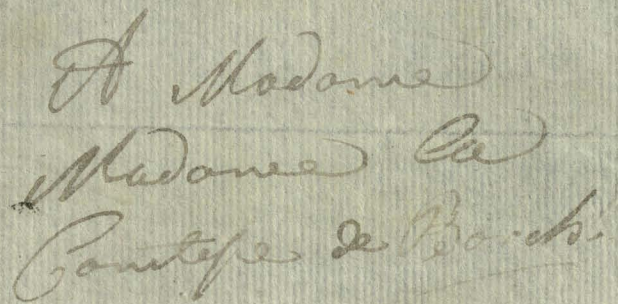 A Madame
Madame la
Comtesse de Borch